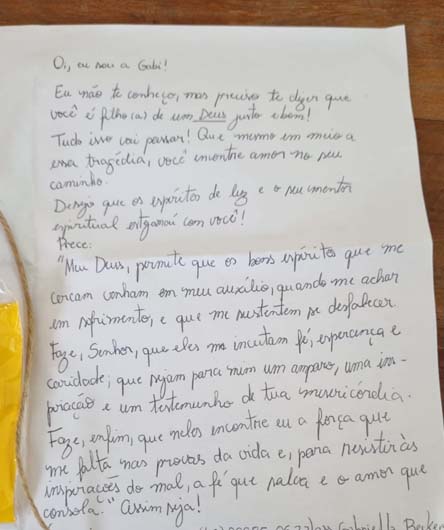 Oi, eu sou a Gabi!
Eu não te conheço, mas preciso te dizer que
você é filho(a) de um Deus justo e bom!
Tudo isso vai passar! Que mesmo em meio a
essa tragédia, você encontre amor no seu
caminho.
Desejo que os espíritos de luz e o seu mentor
espiritual estejam com você!
Prece:
"Meu Deus, permite que os bons espíritos que me
cercam venham em meu auxílio, quando me achar
em sofrimento, e que me sustentem se desfalecer.
Faze, Senhor, que eles me incutam fé, esperança e
caridade; que sejam para mim um amparo, uma ins-
piração e um testemunho da tua misericórdia.
Faze, enfim, que neles encontre eu a força que
me falta nas provas da vida e, para resistir às
inspirações do mal, a fé que salva e o amor que
consola." Assim seja!